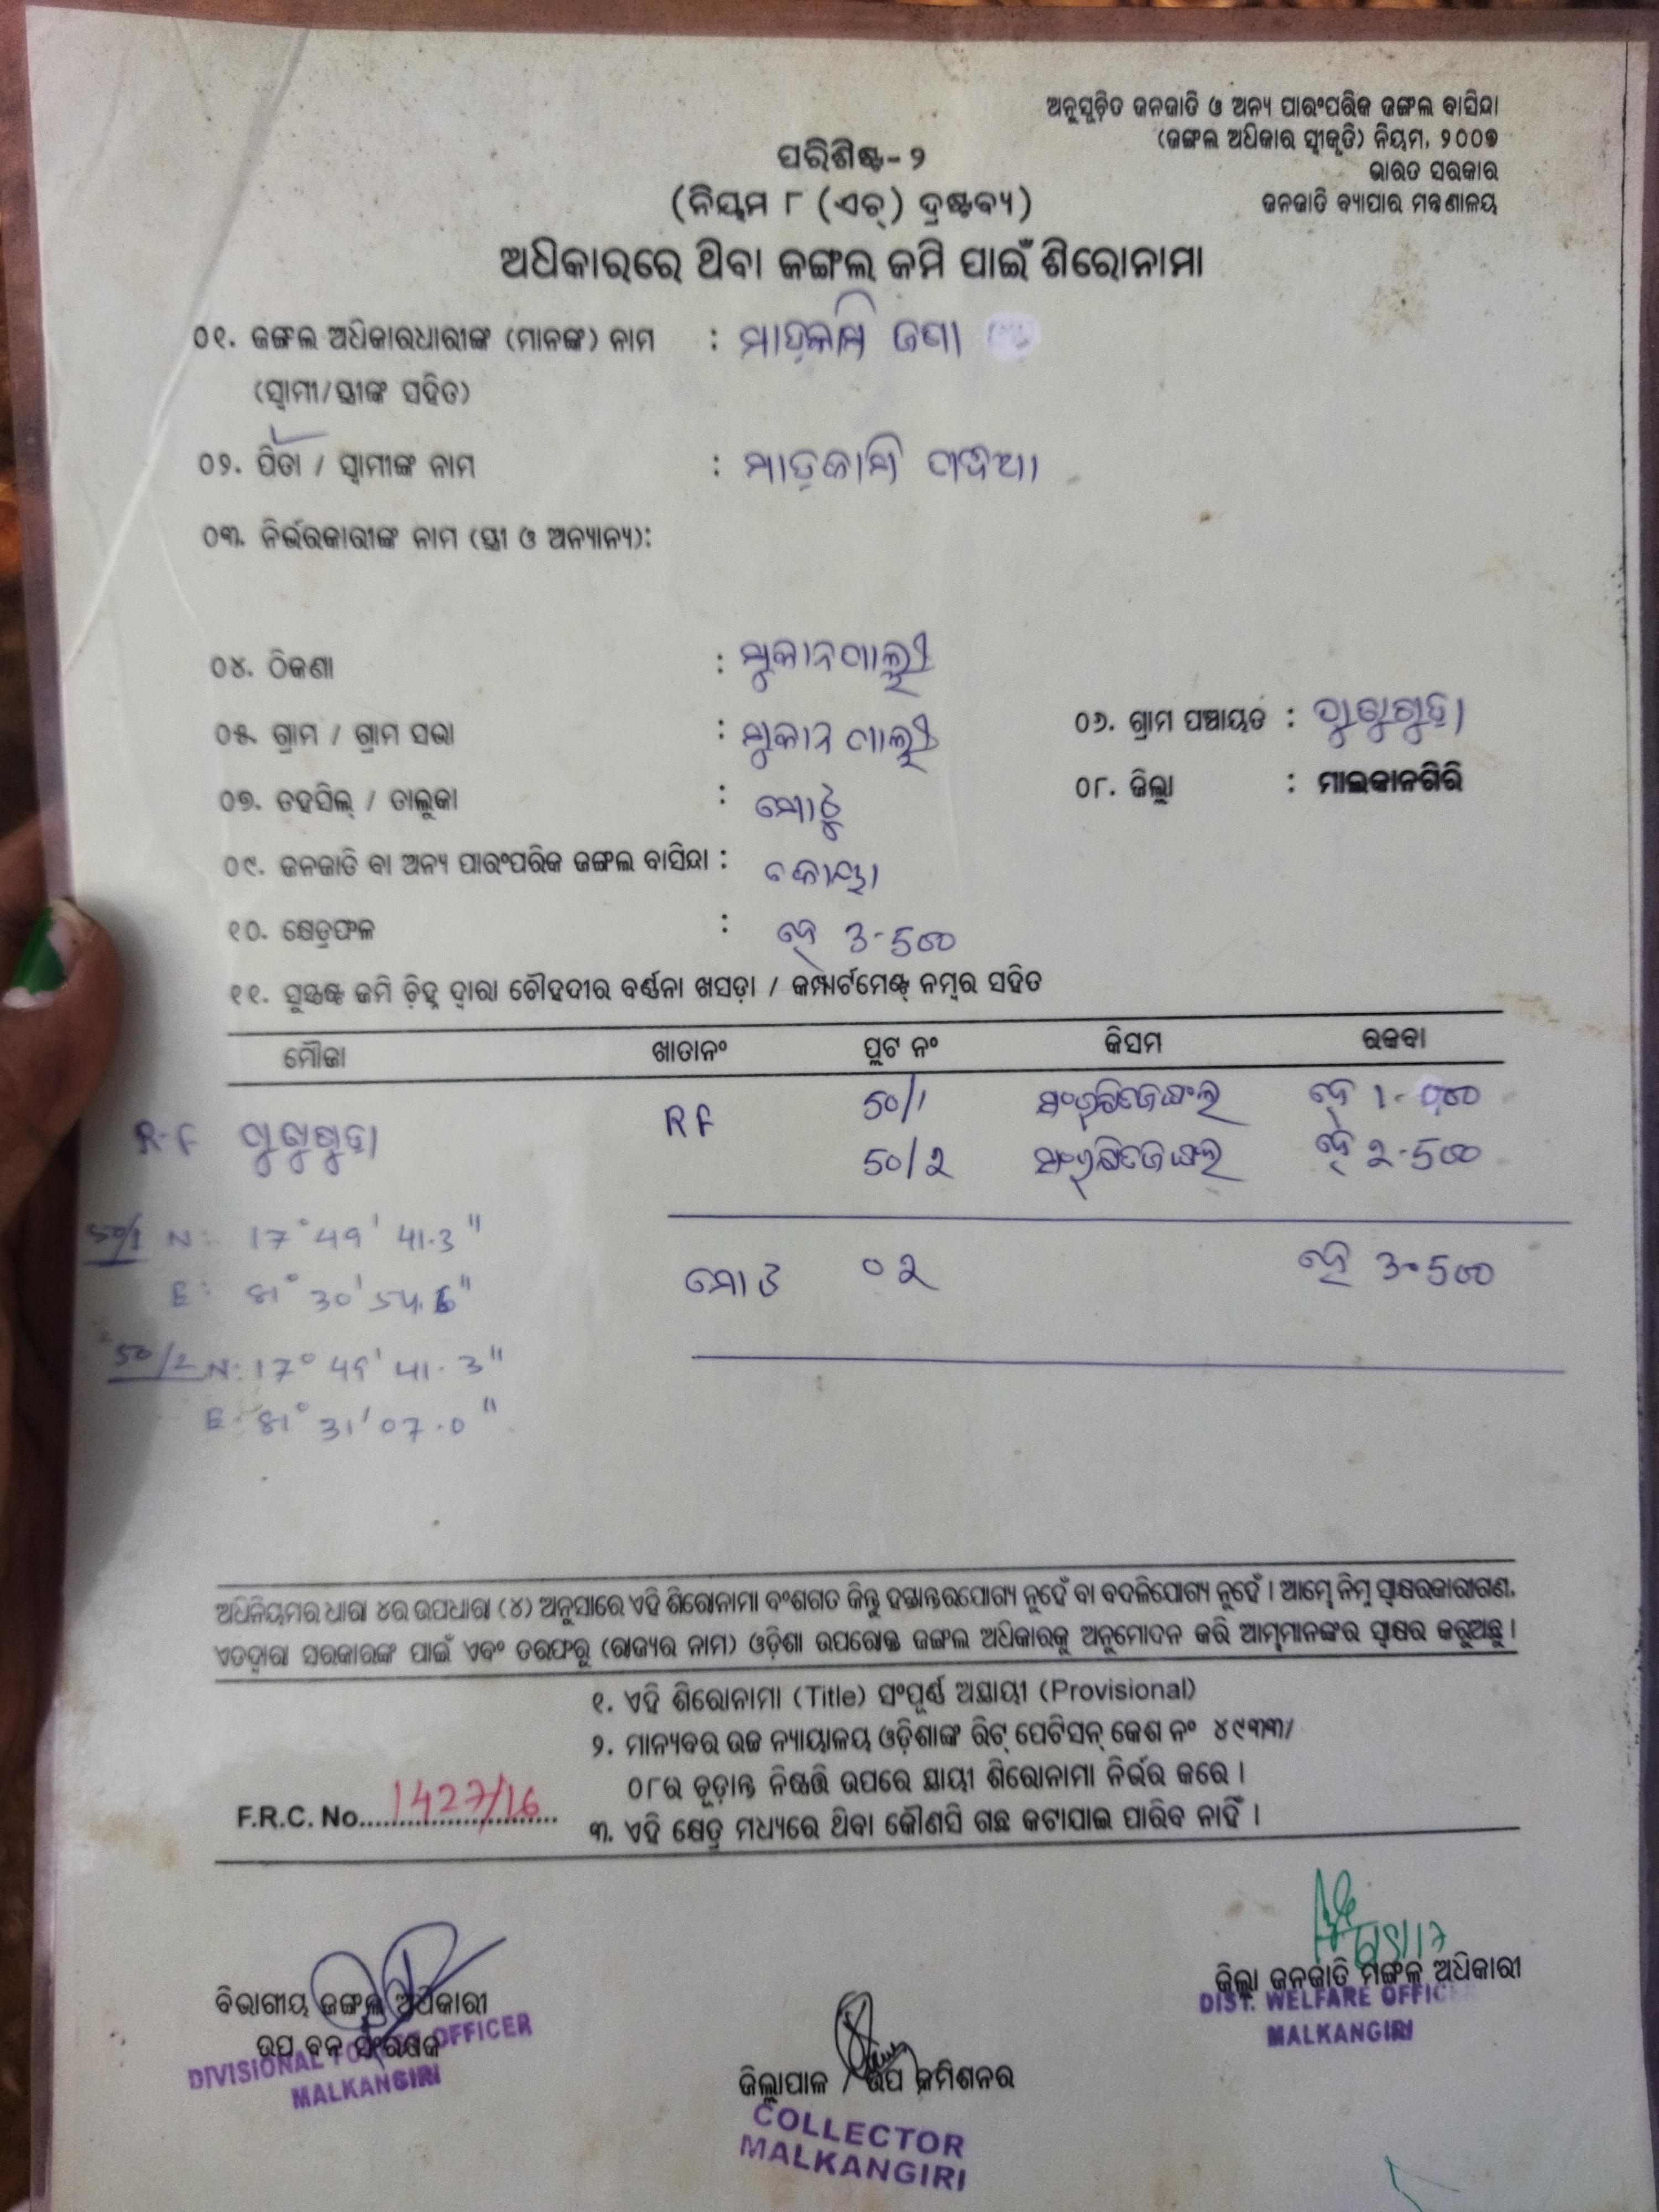 ଅନୁସୂଚିତ ଜନଜାତି ଓ ଅନ୍ୟ ପାରଂପରିକ ଜଙ୍ଗଲ ବାସିନ୍ଦା
(ଜଙ୍ଗଲ ଅଧିକାର ସ୍ୱୀକୃତି) ନିୟମ, ୨୦୦୭
ଭାରତ ସରକାର
ଜନଜାତି ବ୍ୟାପାର ମନ୍ତ୍ରଣାଳୟ
ପରିଶିଷ୍ଟ-୨
(ନିୟମ ୮ (ଏଚ୍) ଦ୍ରଷ୍ଟବ୍ୟ)
ଅଧିକାରରେ ଥିବା ଜଙ୍ଗଲ ଜମି ପାଇଁ ଶିରୋନାମା
୦୧. ଜଙ୍ଗଲ ଅଧିକାରଧାରୀଙ୍କ (ମାନଙ୍କ) ନାମ : ମାଡ଼କାମି
(ସ୍ୱାମୀ/ସ୍ତ୍ରୀଙ୍କ ସହିତ)
୦୨. ପିତା / ସ୍ୱାମୀଙ୍କ ନାମ : ମାଡ଼କାମି
୦୩. ନିର୍ଭରକାରୀଙ୍କ ନାମ (ସ୍ତ୍ରୀ ଓ ଅନ୍ୟାନ୍ୟ):
୦୪. ଠିକଣା :
୦୫. ଗ୍ରାମ / ଗ୍ରାମ ସଭା : ୦୬. ଗ୍ରାମ ପଞ୍ଚାୟତ :
୦୭. ତହସିଲ୍ / ତାଲୁକା : ମୋଟୁ ୦୮. ଜିଲ୍ଲା : ମାଲକାନଗିରି
୦୯. ଜନଜାତି ବା ଅନ୍ୟ ପାରଂପରିକ ଜଙ୍ଗଲ ବାସିନ୍ଦା : କୋୟା
୧୦. କ୍ଷେତ୍ରଫଳ : ହେ 3-500
୧୧. ସୁସ୍ପଷ୍ଟ ଜମି ଚିହ୍ନ ଦ୍ୱାରା ଚୌହଦୀର ବର୍ଣ୍ଣନା ଖସଡ଼ା / କମ୍ପାର୍ଟମେଣ୍ଟ୍ ନମ୍ବର ସହିତ
ମୌଜା ଖାତାନଂ ପ୍ଲଟ ନଂ କିସମ ରକବା
R.F RF 50/1 ହେ 1-000
50/2 ହେ 2-500
50/1 N: 17° 49' 41.3"
E: 81° 30' 54.6"
ମୋଟ ୦2 ହେ 3.500
50/2 N: 17° 49' 41.3"
E: 81° 31' 07.0"
ଅଧିନିୟମର ଧାରା ୪ର ଉପଧାରା (୪) ଅନୁସାରେ ଏହି ଶିରୋନାମା ବଂଶଗତ କିନ୍ତୁ ହସ୍ତାନ୍ତରଯୋଗ୍ୟ ନୁହେଁ ବା ବଦଳିଯୋଗ୍ୟ ନୁହେଁ । ଆମ୍ଭେ ନିମ୍ନ ସ୍ୱାକ୍ଷରକାରୀଗଣ,
ଏତଦ୍ୱାରା ସରକାରଙ୍କ ପାଇଁ ଏବଂ ତରଫରୁ (ରାଜ୍ୟର ନାମ) ଓଡ଼ିଶା ଉପରୋକ୍ତ ଜଙ୍ଗଲ ଅଧିକାରକୁ ଅନୁମୋଦନ କରି ଆମ୍ଭମାନଙ୍କର ସ୍ୱାକ୍ଷର କରୁଅଛୁ ।
୧. ଏହି ଶିରୋନାମା (Title) ସଂପୂର୍ଣ୍ଣ ଅସ୍ଥାୟୀ (Provisional)
୨. ମାନ୍ୟବର ଉଚ୍ଚ ନ୍ୟାୟାଳୟ ଓଡ଼ିଶାଙ୍କ ରିଟ୍ ପେଟିସନ୍ କେଶ ନଂ ୪୯୩୩/
୦୮ର ଚୂଡ଼ାନ୍ତ ନିଷ୍ପତ୍ତି ଉପରେ ସ୍ଥାୟୀ ଶିରୋନାମା ନିର୍ଭର କରେ ।
F.R.C. No. 1427/16
୩. ଏହି କ୍ଷେତ୍ର ମଧ୍ୟରେ ଥିବା କୌଣସି ଗଛ କଟାଯାଇ ପାରିବ ନାହିଁ ।
ଜିଲ୍ଲା ଜନଜାତି ମଙ୍ଗଳ ଅଧିକାରୀ
DIST. WELFARE OFFICER
MALKANGIRI
ବିଭାଗୀୟ ଜଙ୍ଗଲ ଅଧିକାରୀ
ଉପ ବନ ସଂରକ୍ଷକ
DIVISIONAL FOREST OFFICER
MALKANGIRI
ଜିଲ୍ଲାପାଳ / ଉପ କମିଶନର
COLLECTOR
MALKANGIRI